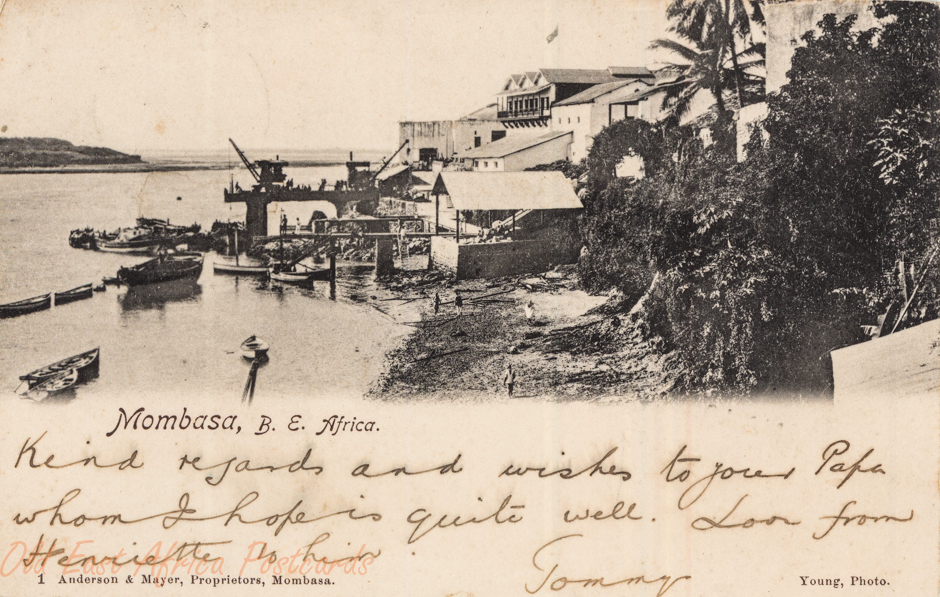 Mombasa, B. E. Africa.
Kind regards and wishes to your Papa
whom I hope is quite well. Love from
Henriette to him.
Tommy
Old East Africa Postcards
1 Anderson & Mayer, Proprietors, Mombasa.
Young, Photo.